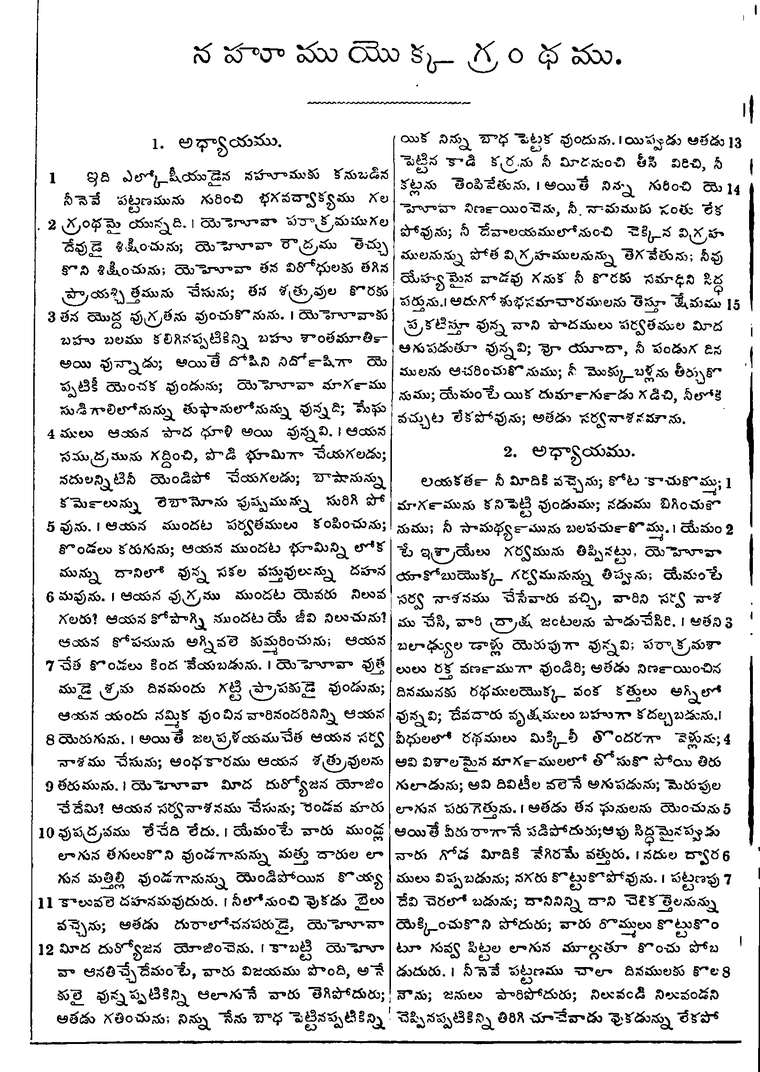 నహూముయొక్క గ్రంథము.
1. అధ్యాయము.
1 ఇది ఎల్కోషీయుడైన నహూముకు కనుబడిన
నీనెవే పట్టణమును గురించి భగవద్వాక్యము గల
2 గ్రంథమై యున్నది. । యెహోవా పరాక్రమముగల
దేవుడై శిక్షించును; యెహోవా రౌద్రము తెచ్చు
కొని శిక్షించును; యెహోవా తన విరోధులకు తగిన
ప్రాయశ్చిత్తమును చేసును; తన శత్రువుల కొరకు
3 తన యొద్ద వుగ్రతను వుంచుకొనును. । యెహోవాకు
బహు బలము కలిగినప్పటికిన్ని బహు శాంతమూర్తి
అయి వున్నాడు; అయితే దోషిని నిర్దోషిగా యె
ప్పటికీ యెంచక వుండును; యెహోవా మార్గము
సుడి గాలిలోనున్ను తుఫానులోనున్ను వున్నది; మేఘ
4 ములు ఆయన పాద ధూళి అయి వున్నవి. । ఆయన
సముద్రమును గద్దించి, పొడి భూమిగా చేయగలడు;
నదులన్నిటినీ యెండిపో చేయగలడు; బాషానున్ను
కర్మెలున్ను లెబానోను పుష్పమున్ను సురిగి పో
5 వును. । ఆయన ముందట పర్వతములు కంపించును;
కొండలు కరుగును; ఆయన ముందట భూమిన్ని లోక
మున్ను దానిలో వున్న సకల వస్తువులున్ను దహన
6 మవును. । ఆయన వుగ్రము ముందట యెవరు నిలువ
గలరు? ఆయన కోపాగ్ని ముందట యే జీవి నిలుచును?
ఆయన కోపమును అగ్నివలె కుమ్మరించును; ఆయన
7 చేత కొండలు కింద వేయబడును. । యెహోవా వుత్త
ముడై శ్రమ దినమందు గట్టి ప్రాపకుడై వుండును;
ఆయన యందు నమ్మిక వుంచిన వారినందరినిన్ని ఆయన
8 యెరుగును. । అయితే జలప్రళయముచేత ఆయన సర్వ
నాశము చేసును; అంధకారము ఆయన శత్రువులను
9 తరుమును. । యెహోవా మీద దుర్యోజన యోజిం
చేదేమి? ఆయన సర్వనాశనము చేసును; రెండవ మారు
10 వుపద్రవము లేచేది లేదు. । యేమంటే వారు ముండ్ల
లాగున తగులుకొని వుండగానున్ను మత్తు దారుల లా
గున మత్తిల్లి వుండగానున్ను యెండిపోయిన కొయ్య
11 కాలువలె దహనమవుదురు. । నీలోనుంచి వుకడు బైలు
వచ్చెను; అతడు దురాలోచనపరుడై, యెహోవా
12 మీద దుర్యోజన యోజించెను. । కాబట్టి యెహో
వా ఆనతిచ్చేదేమంటే, వారు విజయము పొంది, అనే
కులై వున్నప్పటికిన్ని ఆలాగునే వారు తెగిపోదురు;
అతడు గతించును; నిన్ను నేను బాధ పెట్టినప్పటికిన్ని
యిక నిన్ను బాధ పెట్టక వుందును. । యిప్పుడు అతడు 13
పెట్టిన కాడి కర్రను నీ మీదనుంచి తీసి విరిచి, నీ
కట్లను తెంపివేతును. । అయితే నిన్ను గురించి యె 14
హోవా నిర్ణయించెను, నీ నామముకు సంతు లేక
పోవును; నీ దేవాలయములోనుంచి చెక్కిన విగ్రహ
ములనున్ను పోత విగ్రహములనున్ను తెగవేతును; నీవు
యేహ్యమైన వాడవు గనుక నీ కొరకు సమాధిని సిద్ధ
పర్తును. । అదుగో శుభసమాచారములను తెస్తూ క్షేమము 15
ప్రకటిస్తూ వున్న వాని పాదములు పర్వతముల మీద
ఆగుపడుతూ వున్నవి; వో యూదా, నీ పండుగ దిన
ములను ఆచరించుకొనుము; నీ మొక్కుబళ్లను తీర్చుకొ
నుము; యేమంటే యిక దుర్మార్గుడు గడిచి, నీలోకి
వచ్చుట లేకపోవును; అతడు సర్వనాశనమౌను.
2. అధ్యాయము.
లయకర్త నీ మీదికి వచ్చెను; కోట కాచుకొమ్ము; 1
మార్గమును కనిపెట్టి వుండుము; నడుము బిగించుకొ
నుము; నీ సామర్థ్యమును బలపర్చుకొమ్ము. । యేమం 2
టే ఇశ్రాయేలు గర్వమును తిప్పినట్టు, యెహోవా
యాకోబుయొక్క గర్వమునున్ను తిప్పును; యేమంటే
సర్వ నాశనము చేసేవారు వచ్చి, వారిని సర్వ నాశ
ము చేసి, వారి ద్రాక్ష జంటలను పాడుచేసిరి. । అతని 3
బలాఢ్యుల డాళ్లు యెరుపుగా వున్నవి; పరాక్రమశా
లులు రక్త వర్ణముగా వుండిరి; అతడు నిర్ణయించిన
దినమునకు రథములయొక్క వంక కత్తులు అగ్నిలో
వున్నవి; దేవదారు వృక్షములు బహుగా కదల్చబడును. ।
వీధులలో రథములు మిక్కిలీ తొందరగా వెళ్లును; 4
అవి విశాలమైన మార్గములలో తోసుకొ పోయి తిరు
గులాడును; అవి దివిటీల వలెనే అగుపడును; మెరుపుల
లాగున పరుగెత్తును. । అతడు తన ఘనులను యెంచును 5
అయితే వీరు రాగానే పడిపోదురు; ఆవు సిద్ధమైనప్పుడు
వారు గోడ మీదికి వేగిరమే వత్తురు. । నదుల ద్వార 6
ములు విప్పబడును; నగరు కొట్టుకొపోవును. । పట్టణపు 7
దేవి చెరలో బడును; దానినిన్ని దాని చెలికత్తెలనున్ను
యెక్కించుకొని పోదురు; వారు రొమ్ములు కొట్టుకొం
టూ గువ్వ పిట్టల లాగున మూల్గుతూ కొంచు పోబ
డుదురు. । నీనెవే పట్టణము చాలా దినములకు కొల 8
నౌను; జనులు పారిపోదురు; నిలువండి నిలువండని
చెప్పినప్పటికిన్ని తిరిగి చూచేవాడు వుకడున్ను లేకపో